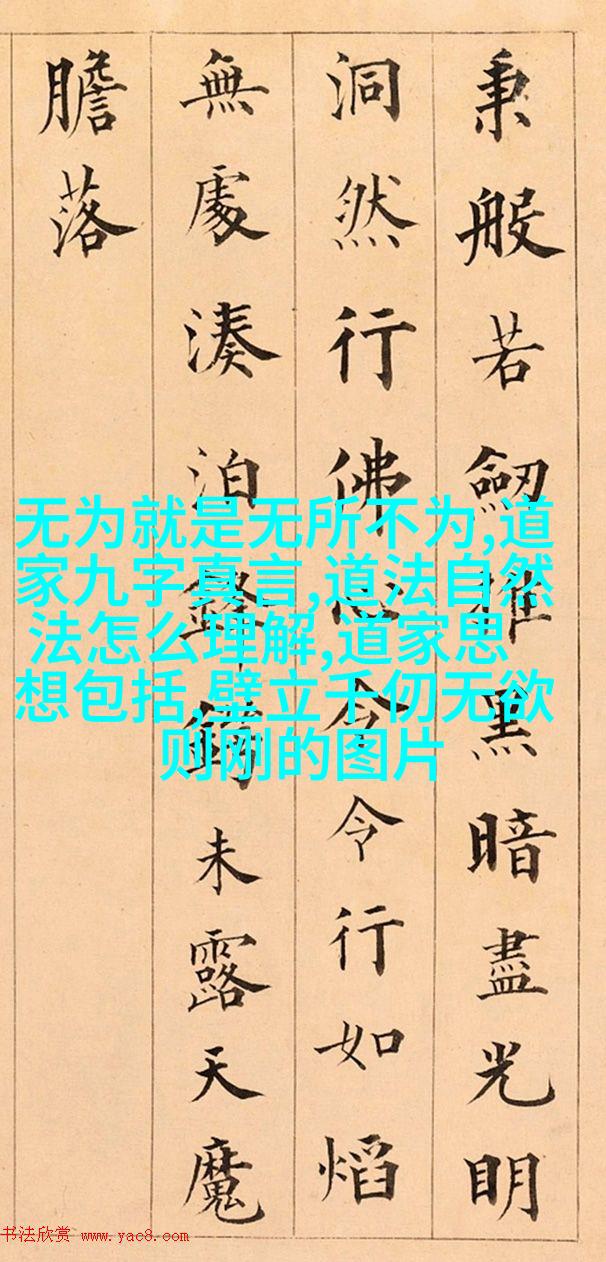 秉般若劒摧黑暗盡光明
洞然行佛心令令行如熖
無處湊泊鋒鋩未露天魔
膽落
无为就是无所不为,道
家九字真言,道法自然
法怎么理解,道家思
想包括,壁立千仞无欲
则刚的图片
书法欣赏 www.yac8.com